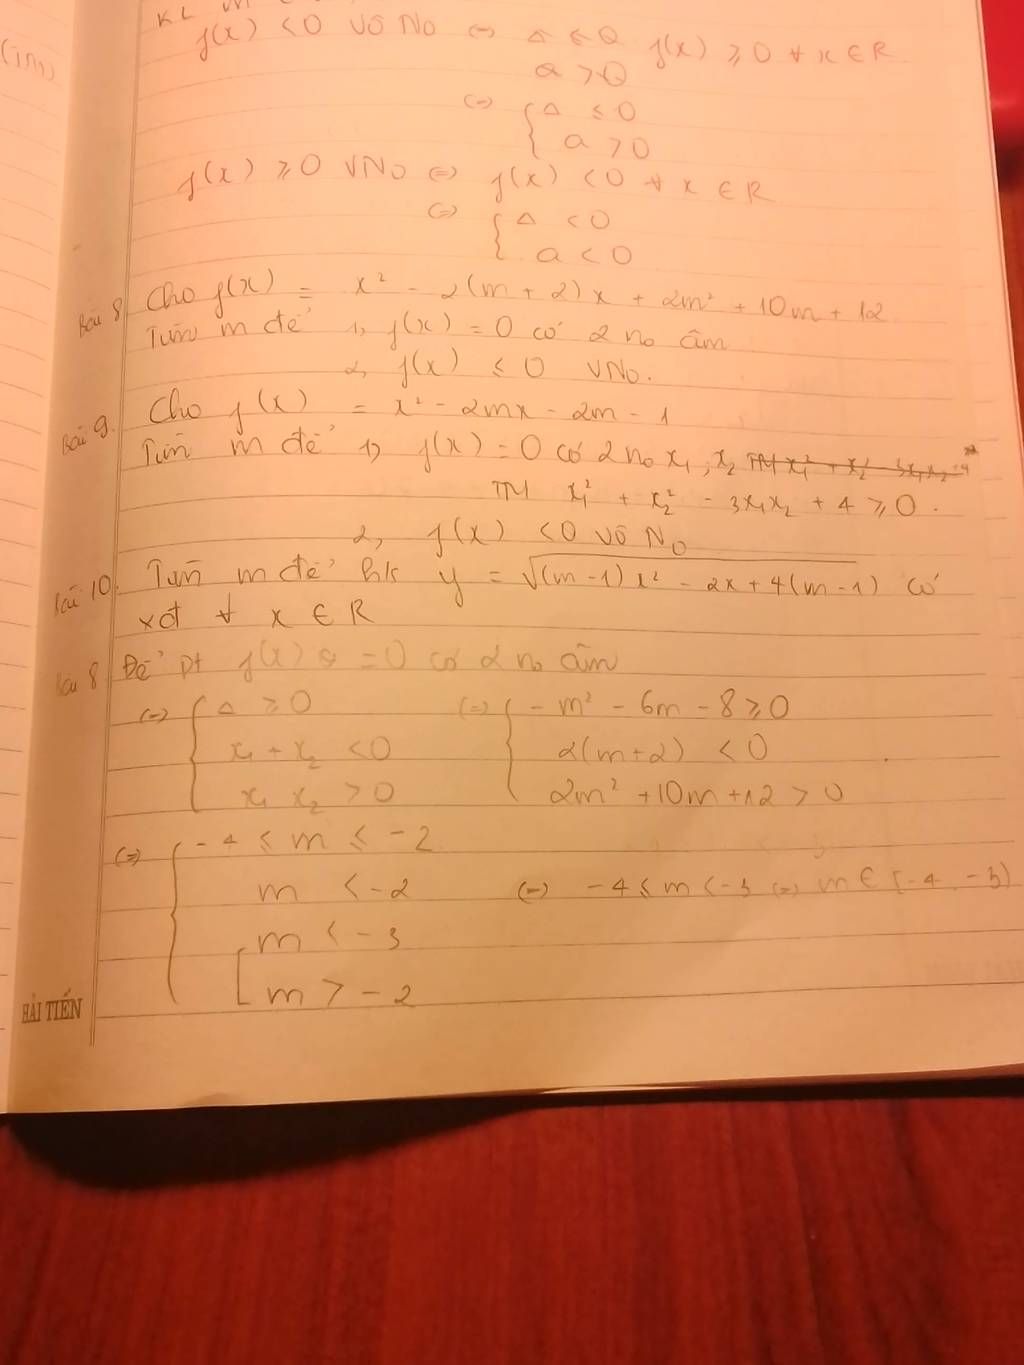 KL m
(im)
f(x) < 0 vô No ⇔ Δ ≤ 0 f(x) ≥ 0 ∀ x ∈ R
a > 0
⇔ { Δ ≤ 0
a > 0
f(x) ≥ 0 VNo ⇔ f(x) < 0 ∀ x ∈ R
⇔ { Δ < 0
a < 0
Bài 8 Cho f(x) = x² - 2(m + 2)x + 2m² + 10m + 12
Tìm m để 1, f(x) = 0 có 2 no âm
2, f(x) ≤ 0 VNo.
Bài 9. Cho f(x) = x² - 2mx - 2m - 1
Tìm m để 1) f(x) = 0 có 2 no x₁, x₂
TM x₁² + x₂² - 3x₁x₂ + 4 ≥ 0.
2, f(x) < 0 vô No
Bài 10. Tìm m để hk y = √(m-1)x² - 2x + 4(m-1) có
xđ ∀ x ∈ R
Bài 8 Để pt f(x) = 0 có 2 no âm
⇔ { Δ ≥ 0 ⇔ { -m² - 6m - 8 ≥ 0
x₁ + x₂ < 0 2(m+2) < 0
x₁ x₂ > 0 2m² + 10m + 12 > 0
⇔ { -4 ≤ m ≤ -2
m < -2 ⇔ -4 ≤ m < -3 ⇔ m ∈ [-4, -3)
[ m < -3
m > -2
HẢI TIẾN